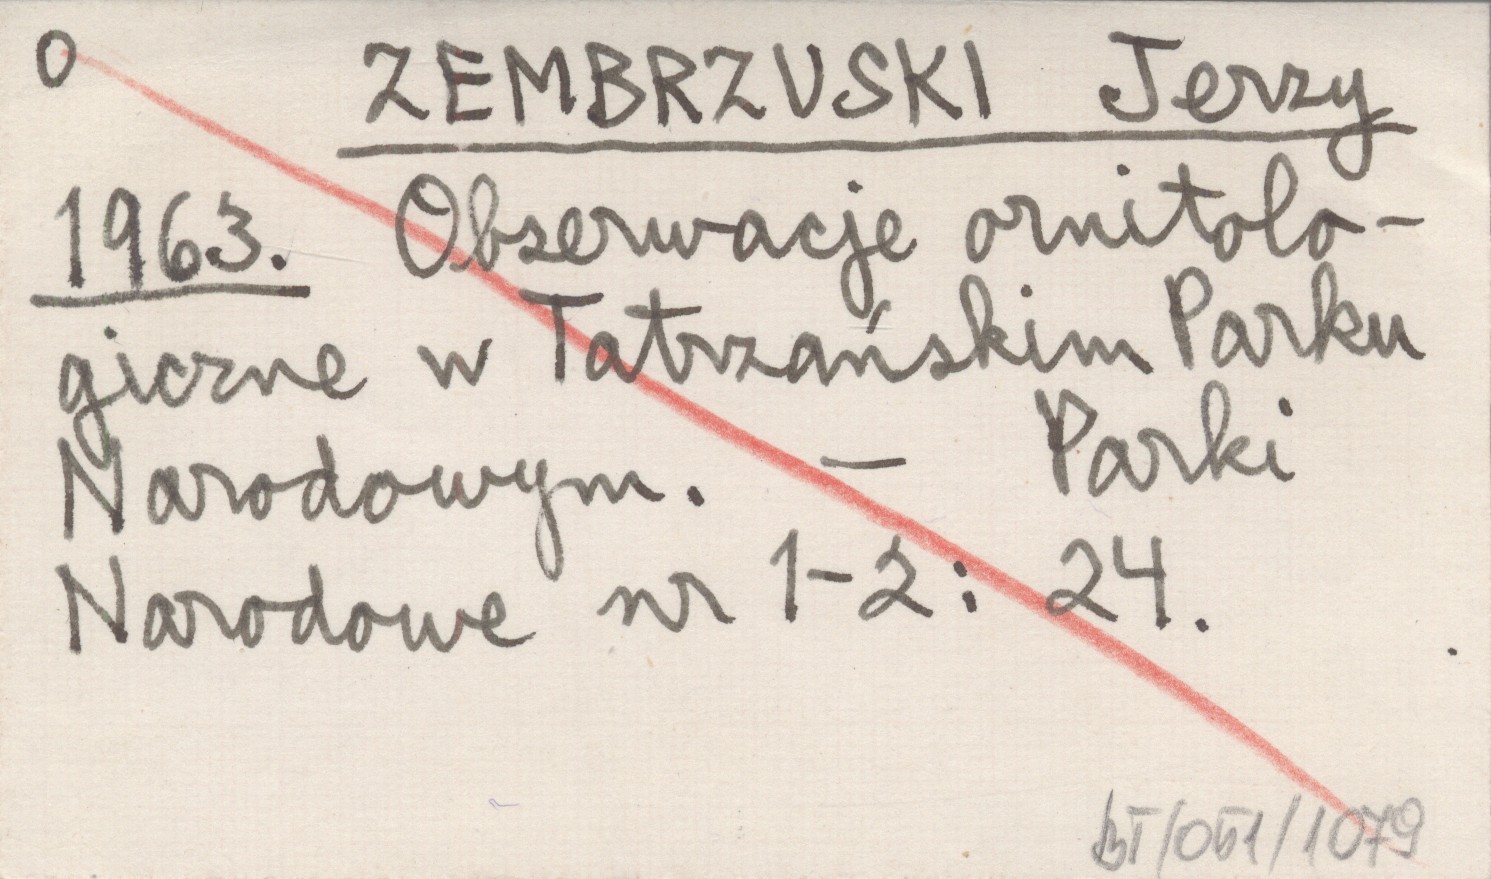 O ZEMBRZUSKI Jerzy
1963. Obserwacje ornitolo-
giczne w Tatrzańskim Parku
Narodowym. — Parki
Narodowe nr 1-2: 24.
BT/051/1079